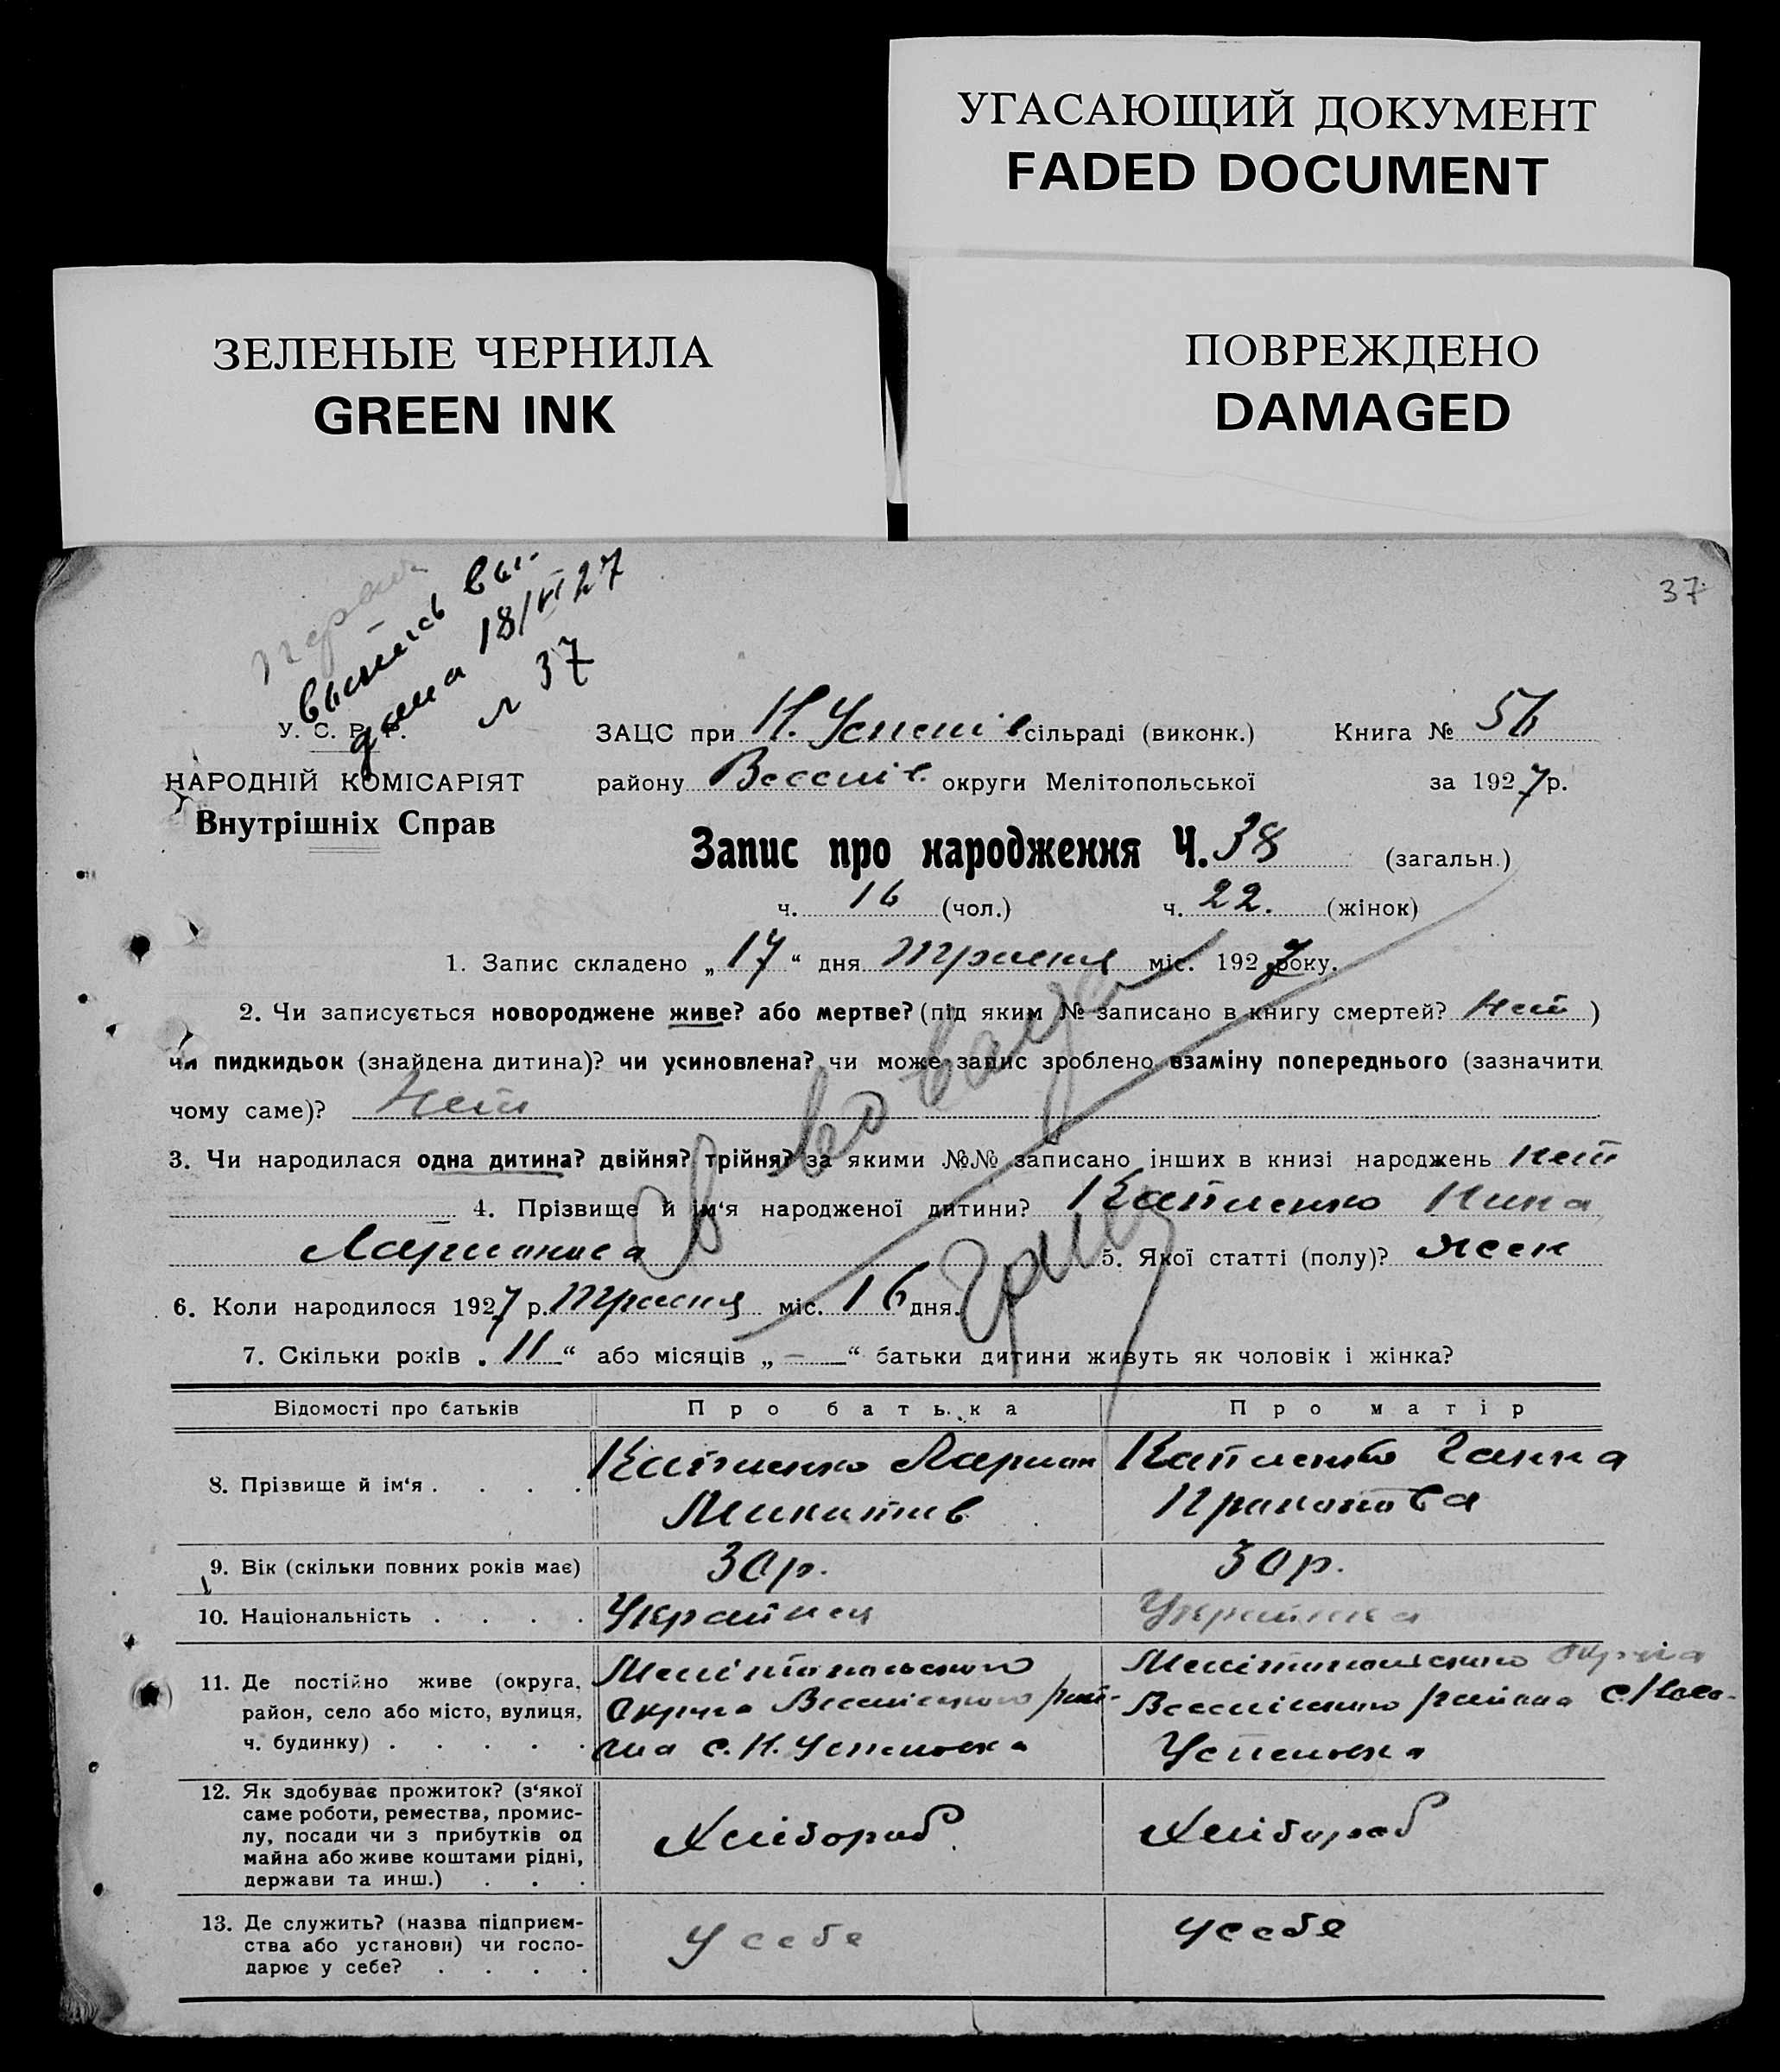 УГАСАЮЩИЙ ДОКУМЕНТ
FADED DOCUMENT
ЗЕЛЕНЫЕ ЧЕРНИЛА
GREEN INK
ПОВРЕЖДЕНО
DAMAGED
37
выпись вы-
дана 18/VI 27
№ 37
У. С. Р. Р.
НАРОДНІЙ КОМІСАРІЯТ
Внутрішніх Справ
ЗАЦС при Н. Успенів сільраді (виконк.) Книга № 56
району Веселів. округи Мелітопольської за 1927 р.
Запис про народження Ч. 38 (загальн.)
ч. 16 (чол.) ч. 22. (жінок)
1. Запис складено „17“ дня Травня міс. 1927 року.
2. Чи записується новороджене живе? або мертве? (під яким № записано в книгу смертей? Нет )
чи пидкидьок (знайдена дитина)? чи усиновлена? чи може запис зроблено взаміну попереднього (зазначити
чому саме)? Нет
3. Чи народилася одна дитина? двійня? трійня? за якими №№ записано інших в книзі народжень нет
4. Прізвище й ім‘я народженої дитини? Катменко Нина
Ларионова 5. Якої статті (полу)? жен
6. Коли народилося 1927 р. Травня міс. 16 дня.
7. Скільки років „11“ або місяців „-“ батьки дитини живуть як чоловік і жінка?
Відомості про батьків Про батька Про матір
8. Прізвище й ім‘я . . . . Катменко Ларион Катменко Ганна
Микитів Прокопова
9. Вік (скільки повних років має) 30 р. 30 р.
10. Національність . . . . Українец Українка
11. Де постійно живе (округа, Мелітопольского Мелітопольского Округа
район, село або місто, вулиця, Округа Веселівского рай- Веселівского района с. Ново-
ч. будинку) . . . . . она с. Н. Успеновка Успеновка
12. Як здобуває прожиток? (з‘якої
саме роботи, ремества, промис-
лу, посади чи з прибутків од Хлібороб Хлібороб
майна або живе коштами рідні,
держави та инш.) . . .
13. Де служить? (назва підприєм-
ства або установи) чи госпо- У себе У себе
дарює у себе? . . . .